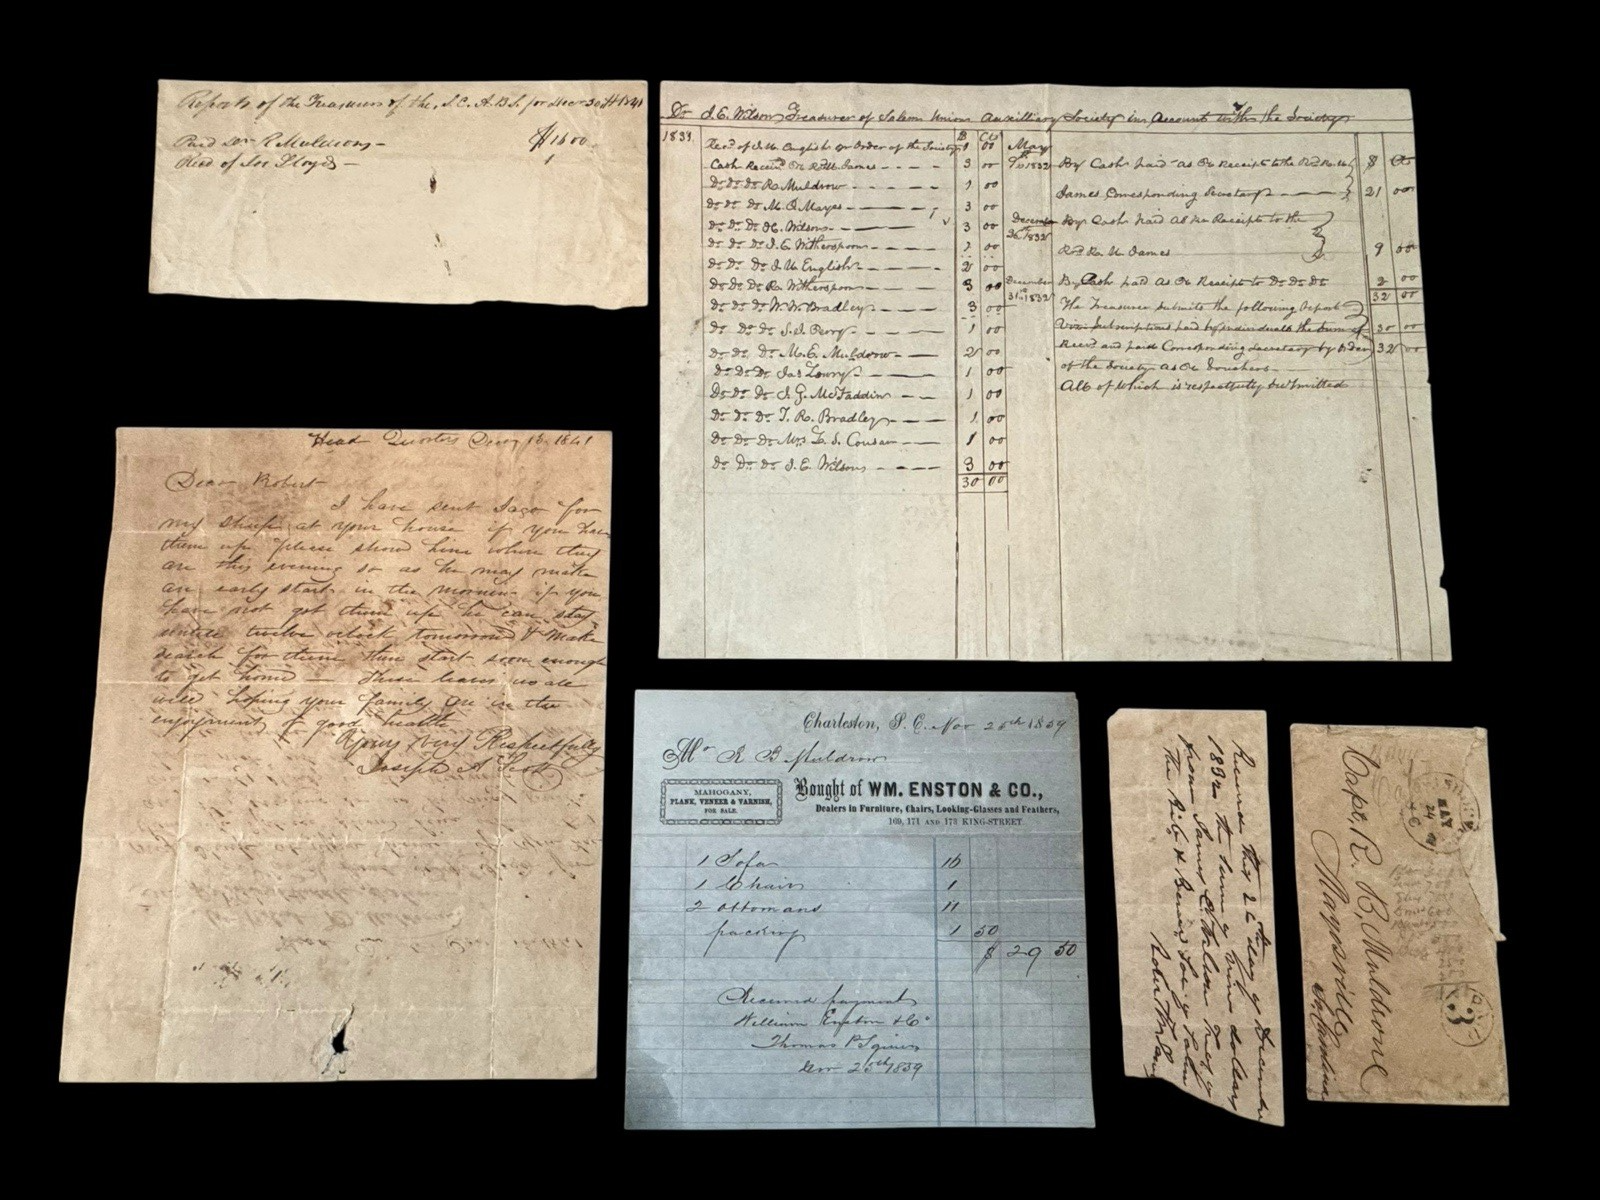 Reports of the Treasurer of the S.C.A.B.S. for Decr 30th 1841
Paid Wm R Muldrow — $1600
Recd of Jos Lloyd — 1
Dr. J. E. Wilson Treasurer of Salem Union Auxilliary Society in Account with the Society
1831.
D Cts
Recd of J. W. English pr Order of the Society 1 00
Cash Received Pr R. W. James 3 00
Do Do Do R. Muldrow 1 00
Do Do Do M. J Mayes 3 00
Do Do Do H. Wilson 3 00
Do Do Do J. E Witherspoon 00
Do Do Do J. W English 2 00
Do Do Do R. Witherspoon 3 00
Do Do Do W. W. Bradley 3 00
Do Do Do S. J. Perry 1 00
Do Do Do M. E. Muldrow 2 00
Do Do Do Jas Lowry 1 00
Do Do Do J. G. McFaddin 1 00
Do Do Do T. R. Bradley 1 00
Do Do Do Mrs L. S. Cousar 1 00
Do Do Do J. E. Wilson 3 00
30 00
May
1832 By Cash paid as Pr Receipt to the Revd R. W.
James Corresponding Secretary 21 00
December 26th 1832
By Cash paid as Per Receipts to the
Revd R. W. James 9 00
December 31st 1832
By Cash paid as Pr Receipt to Do Do Do 2 00
32 00
The Treasurer Submits the following Report
Viz. Subscriptions paid by individuals the Sum of 30 00
Recd and paid Corresponding Secretary by Order 32 00
of the Society as Pr Vouchers
All of Which is respectfully Submitted
Head Quarters 1861
Dear Robert
I have sent Jago for
my sheep at your house if you have
them up please show him where they
are this evening so as he may make
an early start in the morning if you
have not got them up he can stay
untill twelve oclock tomorrow & make
search for them then start soon enough
to get home — These leaves us all
well hoping your family are in the
enjoyment of good health
Yours very Respectfully
Joseph A. Scott
Charleston, S. C. Nov 25th 1859
Mr R B Muldrow
Bought of WM. ENSTON & CO.,
MAHOGANY,
PLANK, VENEER & VARNISH,
FOR SALE.
Dealers in Furniture, Chairs, Looking-Glasses and Feathers,
169, 171 AND 173 KING-STREET
1 Sofa 16
1 Chair 1
2 Ottomans 11
packing 1 50
$ 29 50
Received payment
William Enston & Co
Thomas P Squires
Nov 25th 1859
Received this 26th day of December
1832 the sum of nine dollars
from James E. Wilson Treas of
The Rity & Benev Soc of Salem
Capt, R. B. Muldrone
Mayesville
So Carolina
MAY
24